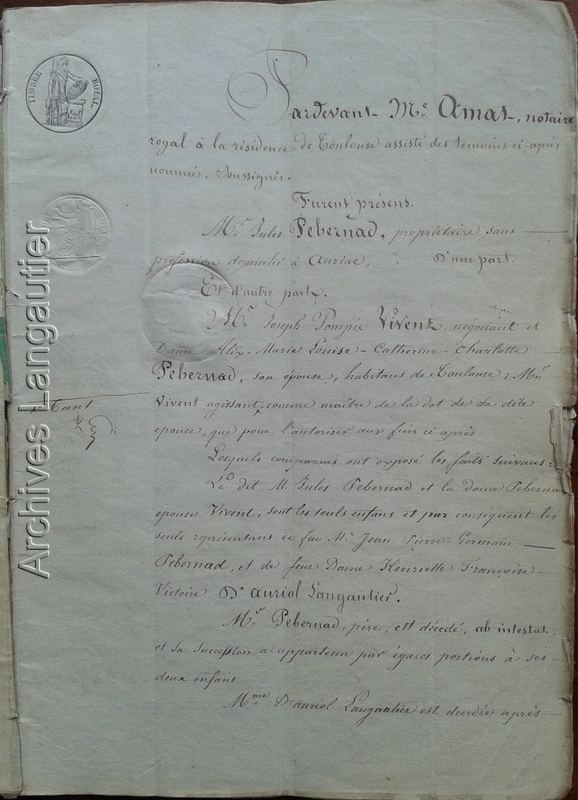 TIMBRE ROYAL
Pardevant Me Amat, notaire
royal à la résidence de Toulouse assisté des témoins ci-après
nommés, soussignés.
Furent présens.
Mr. Jules Pebernad, propriétaire, sans
profession domicilié à Auriac, D'une part.
Et d'autre part.
Mr. Joseph Pompée Vivent, négociant et
Dame Alix-Marie Louise-Catherine-Charlotte
Pebernad, son épouse, habitans de Toulouse; Mr.
Vivent agissant, comme maître de la dot de sa dite
tant
épouse, que pour l'autoriser aux fins ci après.
Lesquels comparans ont exposé les faits suivans:
Le dit M. Jules Pebernad et la dame Pebernad
épouse Vivent, sont les seuls enfans et par conséquent les
seuls représentans de feu Mr. Jean Pierre-Germain
Pebernad, et de feue Dame Henriette Françoise
Victoire D'auriol Langautier.
Mr. Pebernad, père, est décédé, ab intestat
et sa succession a appartenu par égales portions à ses
deux enfans
Mme D'auriol Langautier est décédée après
Archives Langautier